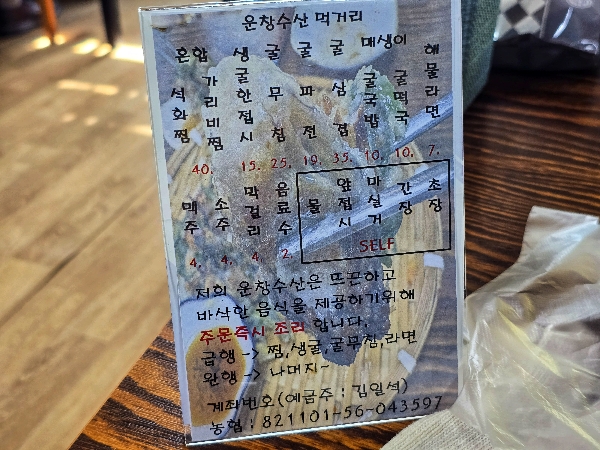 운창수산 먹거리
혼합
석화찜
가리비찜
40.
생굴한접시
15.
굴무침
25.
굴파전
19.
굴삼접
35.
매생이
굴국밥
10.
굴떡국
10.
해물라면
7.
맥주
4.
소주
4.
막걸리
4.
음료수
2.
물
앞접시
마실거
간장
초장
SELF
저희 운창수산은 뜨끈하고
바삭한 음식을 제공하기위해
주문즉시 조리 합니다.
급행 -> 찜,생굴,굴무침,라면
완행 -> 나머지~
계좌번호(예금주 : 김일석)
농협 : 821101-56-043597